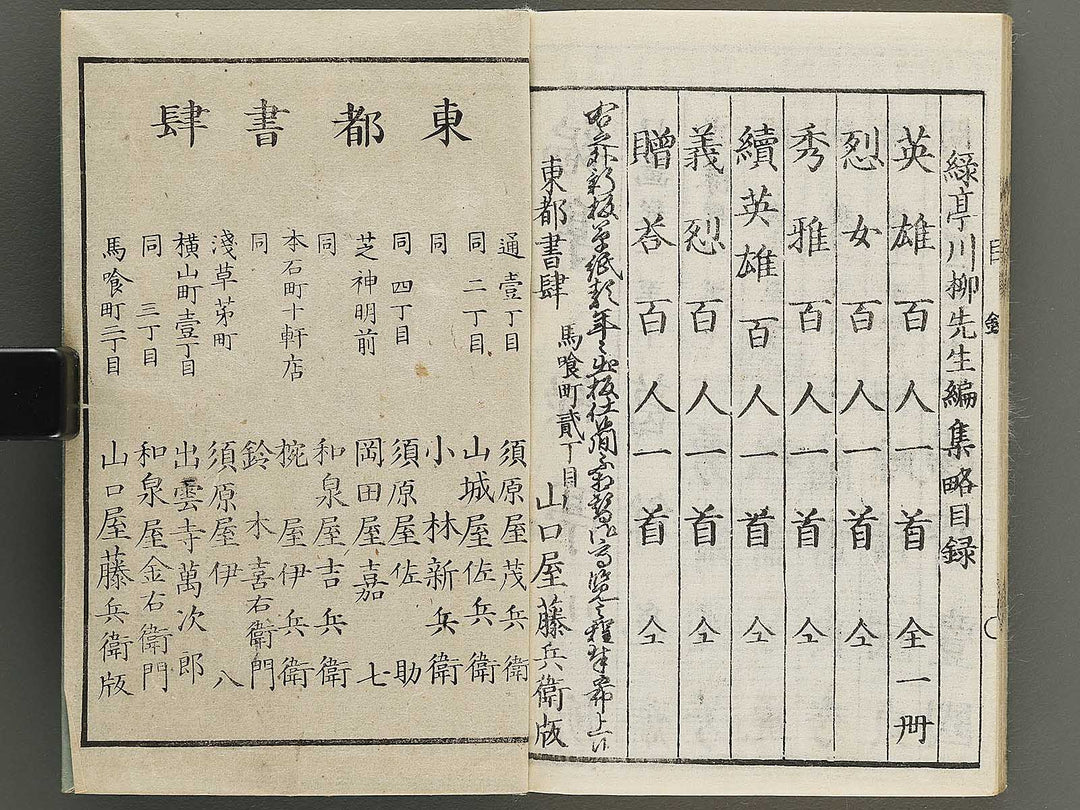 目録
緑亭川柳先生編集略目録
英雄百人一首 全一冊
烈女百人一首 仝
秀雅百人一首 仝
續英雄百人一首 仝
義烈百人一首 仝
贈答百人一首 仝
右之外新板草紙類年々出板仕候間不相替御高覧之程奉希上候
東都書肆 馬喰町貳丁目 山口屋藤兵衛版
東都書肆
通壹丁目 須原屋茂兵衛
同二丁目 山城屋佐兵衛
同 小林新兵衛
同四丁目 須原屋佐助
芝神明前 岡田屋嘉七
同 和泉屋吉兵衛
本石町十軒店 椀屋伊兵衛
同 鈴木喜右衛門
淺草茅町 須原屋伊八
横山町壹丁目 出雲寺萬次郎
同三丁目 和泉屋金右衛門
馬喰町二丁目 山口屋藤兵衛版